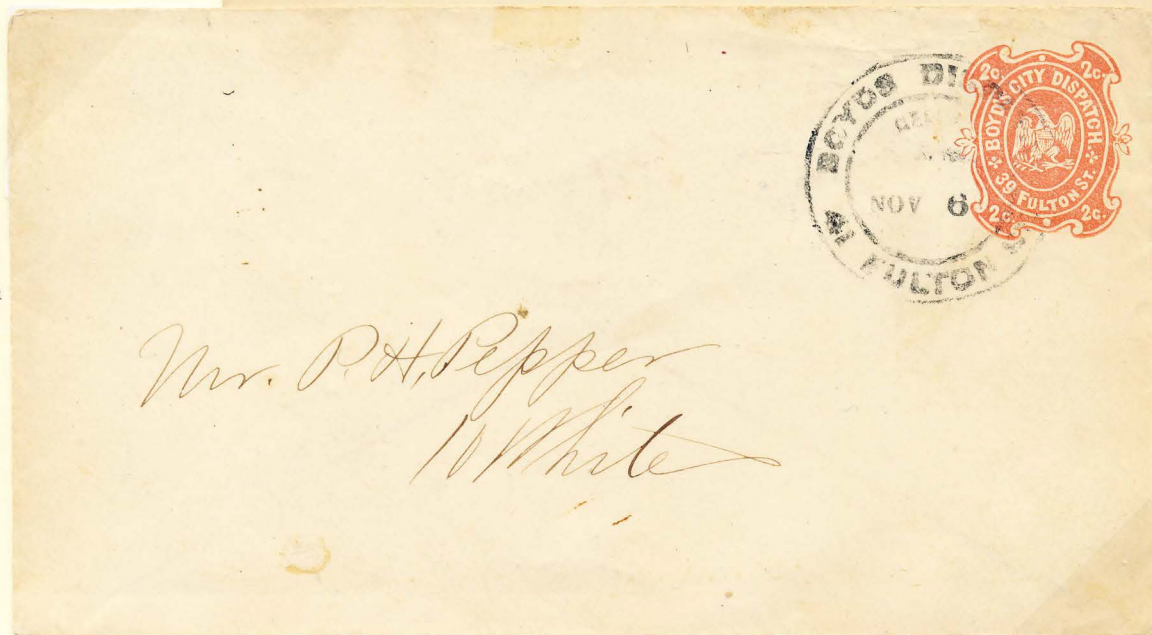 BOYDS
NOV 6
FULTON
2c. 2c.
BOYD'S CITY DISPATCH
39 FULTON ST.
2c. 2c.
Mr. P. H. Pepper
10 White